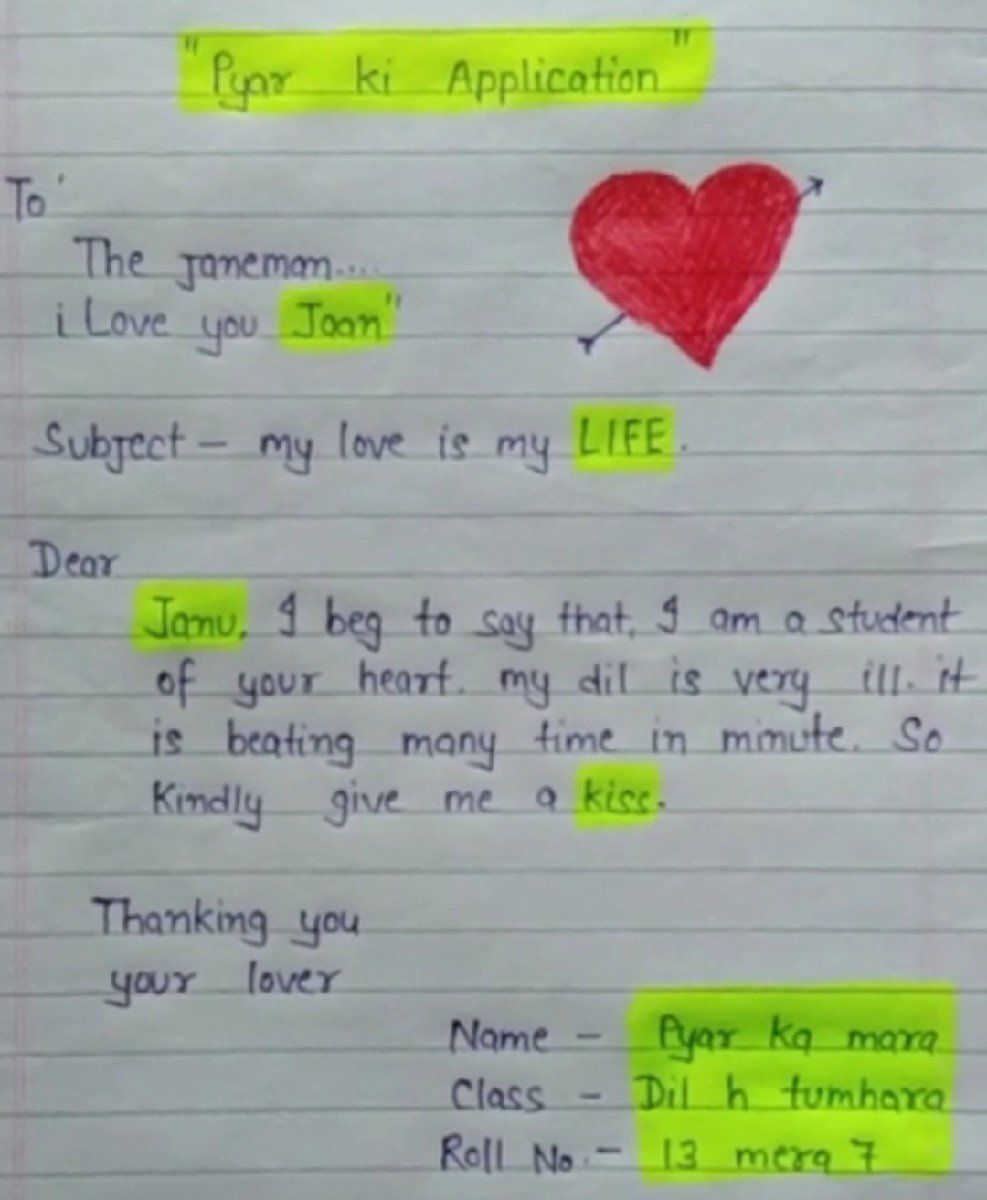 "Pyar ki Application"
To'
The Janeman....
i Love you Jaan"
Subject - my love is my LIFE.
Dear
Janu. I beg to say that, I am a student
of your heart. my dil is very ill. it
is beating many time in minute. So
Kindly give me a kiss.
Thanking you
your lover
Name - Pyar ka mara
Class - Dil h tumhara
Roll No.- 13 mera 7